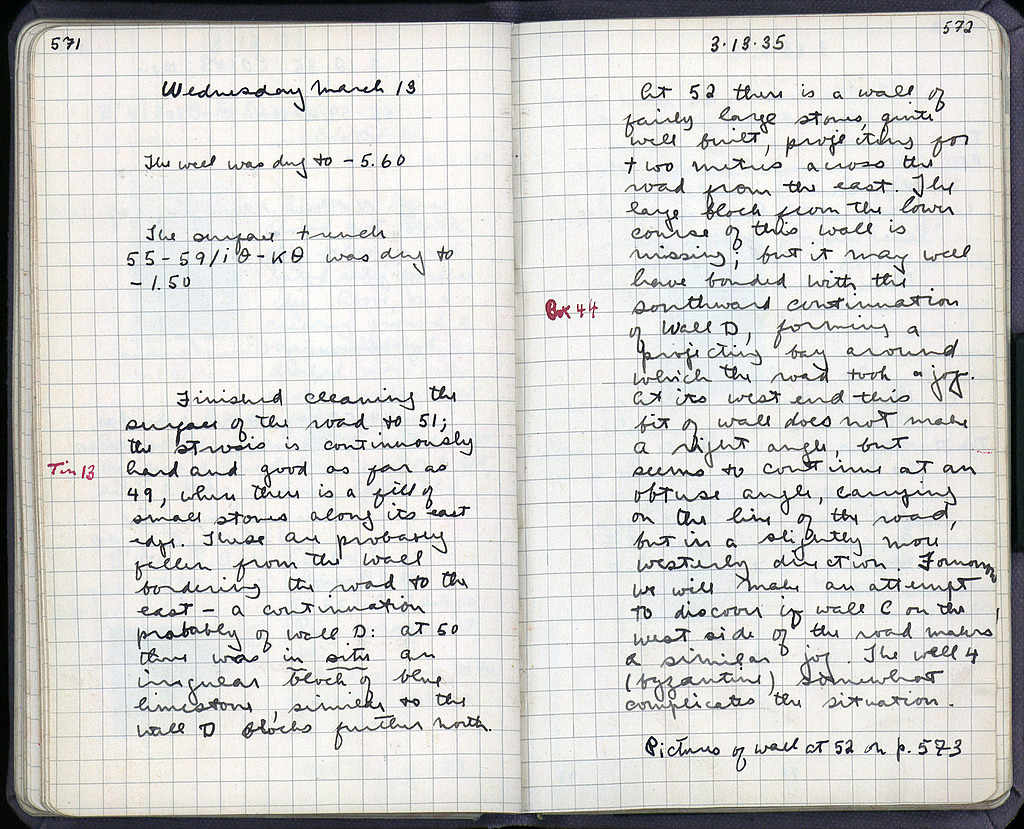 571
Wednesday March 13
The well was dug to -5.60
The surface trench
55-59/ιθ-κθ was dug to
-1.50
Finished cleaning the
surface of the road to 51;
the strosis is continuously
Tin 13
hard and good as far as
49, where there is a fill of
small stones along its east
edge. These are probably
fallen from the wall
bordering the road to the
east - a continuation
probably of wall D: at 50
there was in situ an
irregular block of blue
limestone, similar to the
wall D blocks further north.
572
3·13·35
At 52 there is a wall of
fairly large stones, quite
well built, projecting for
two metres across the
road from the east. The
large block from the lower
course of this wall is
missing; but it may well
have bonded with the
Box 44
southward continuation
of Wall D, forming a
projecting bay around
which the road took a jog.
At its west end this
bit of wall does not make
a right angle, but
seems to continue at an
obtuse angle, carrying
on the line of the road,
but in a slightly more
westerly direction. Tomorrow
we will make an attempt
to discover if wall C on the
west side of the road makes
a similar jog. The well 4
(byzantine) somewhat
complicates the situation.
Pictures of wall at 52 on p. 573